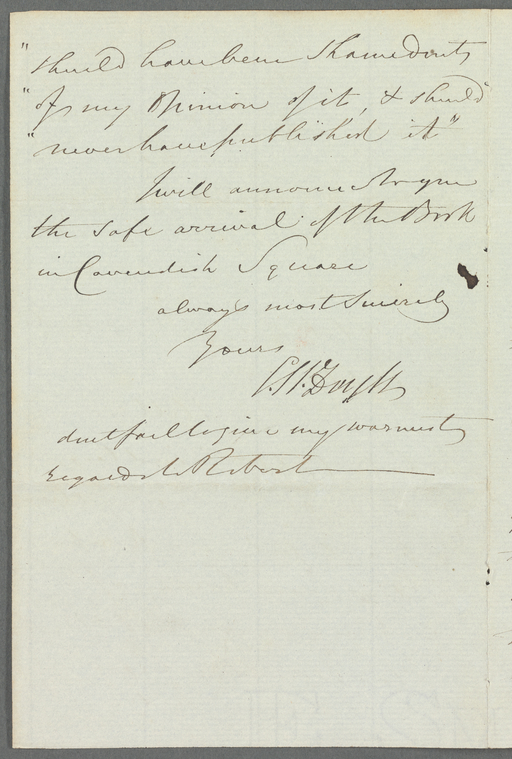 "should have been shamed out
"of my opinion of it, & should
"never have published it"
I will announce to you
the safe arrival of the Book
in Cavendish Square
always most sincerely
Yours
dont fail to give my warmest
regards to Robert